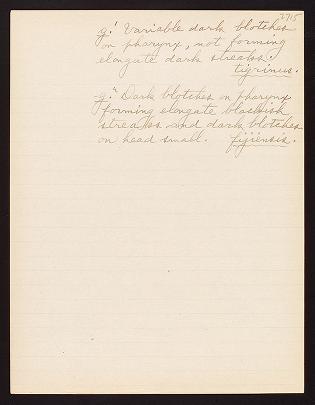 2715
g.' Variable dark blotches
on pharynx, not forming
elongate dark streaks.
tigrinus.
g." Dark blotches on pharynx
forming elongate blackish
streaks and dark blotches
on head small. fijiensis.